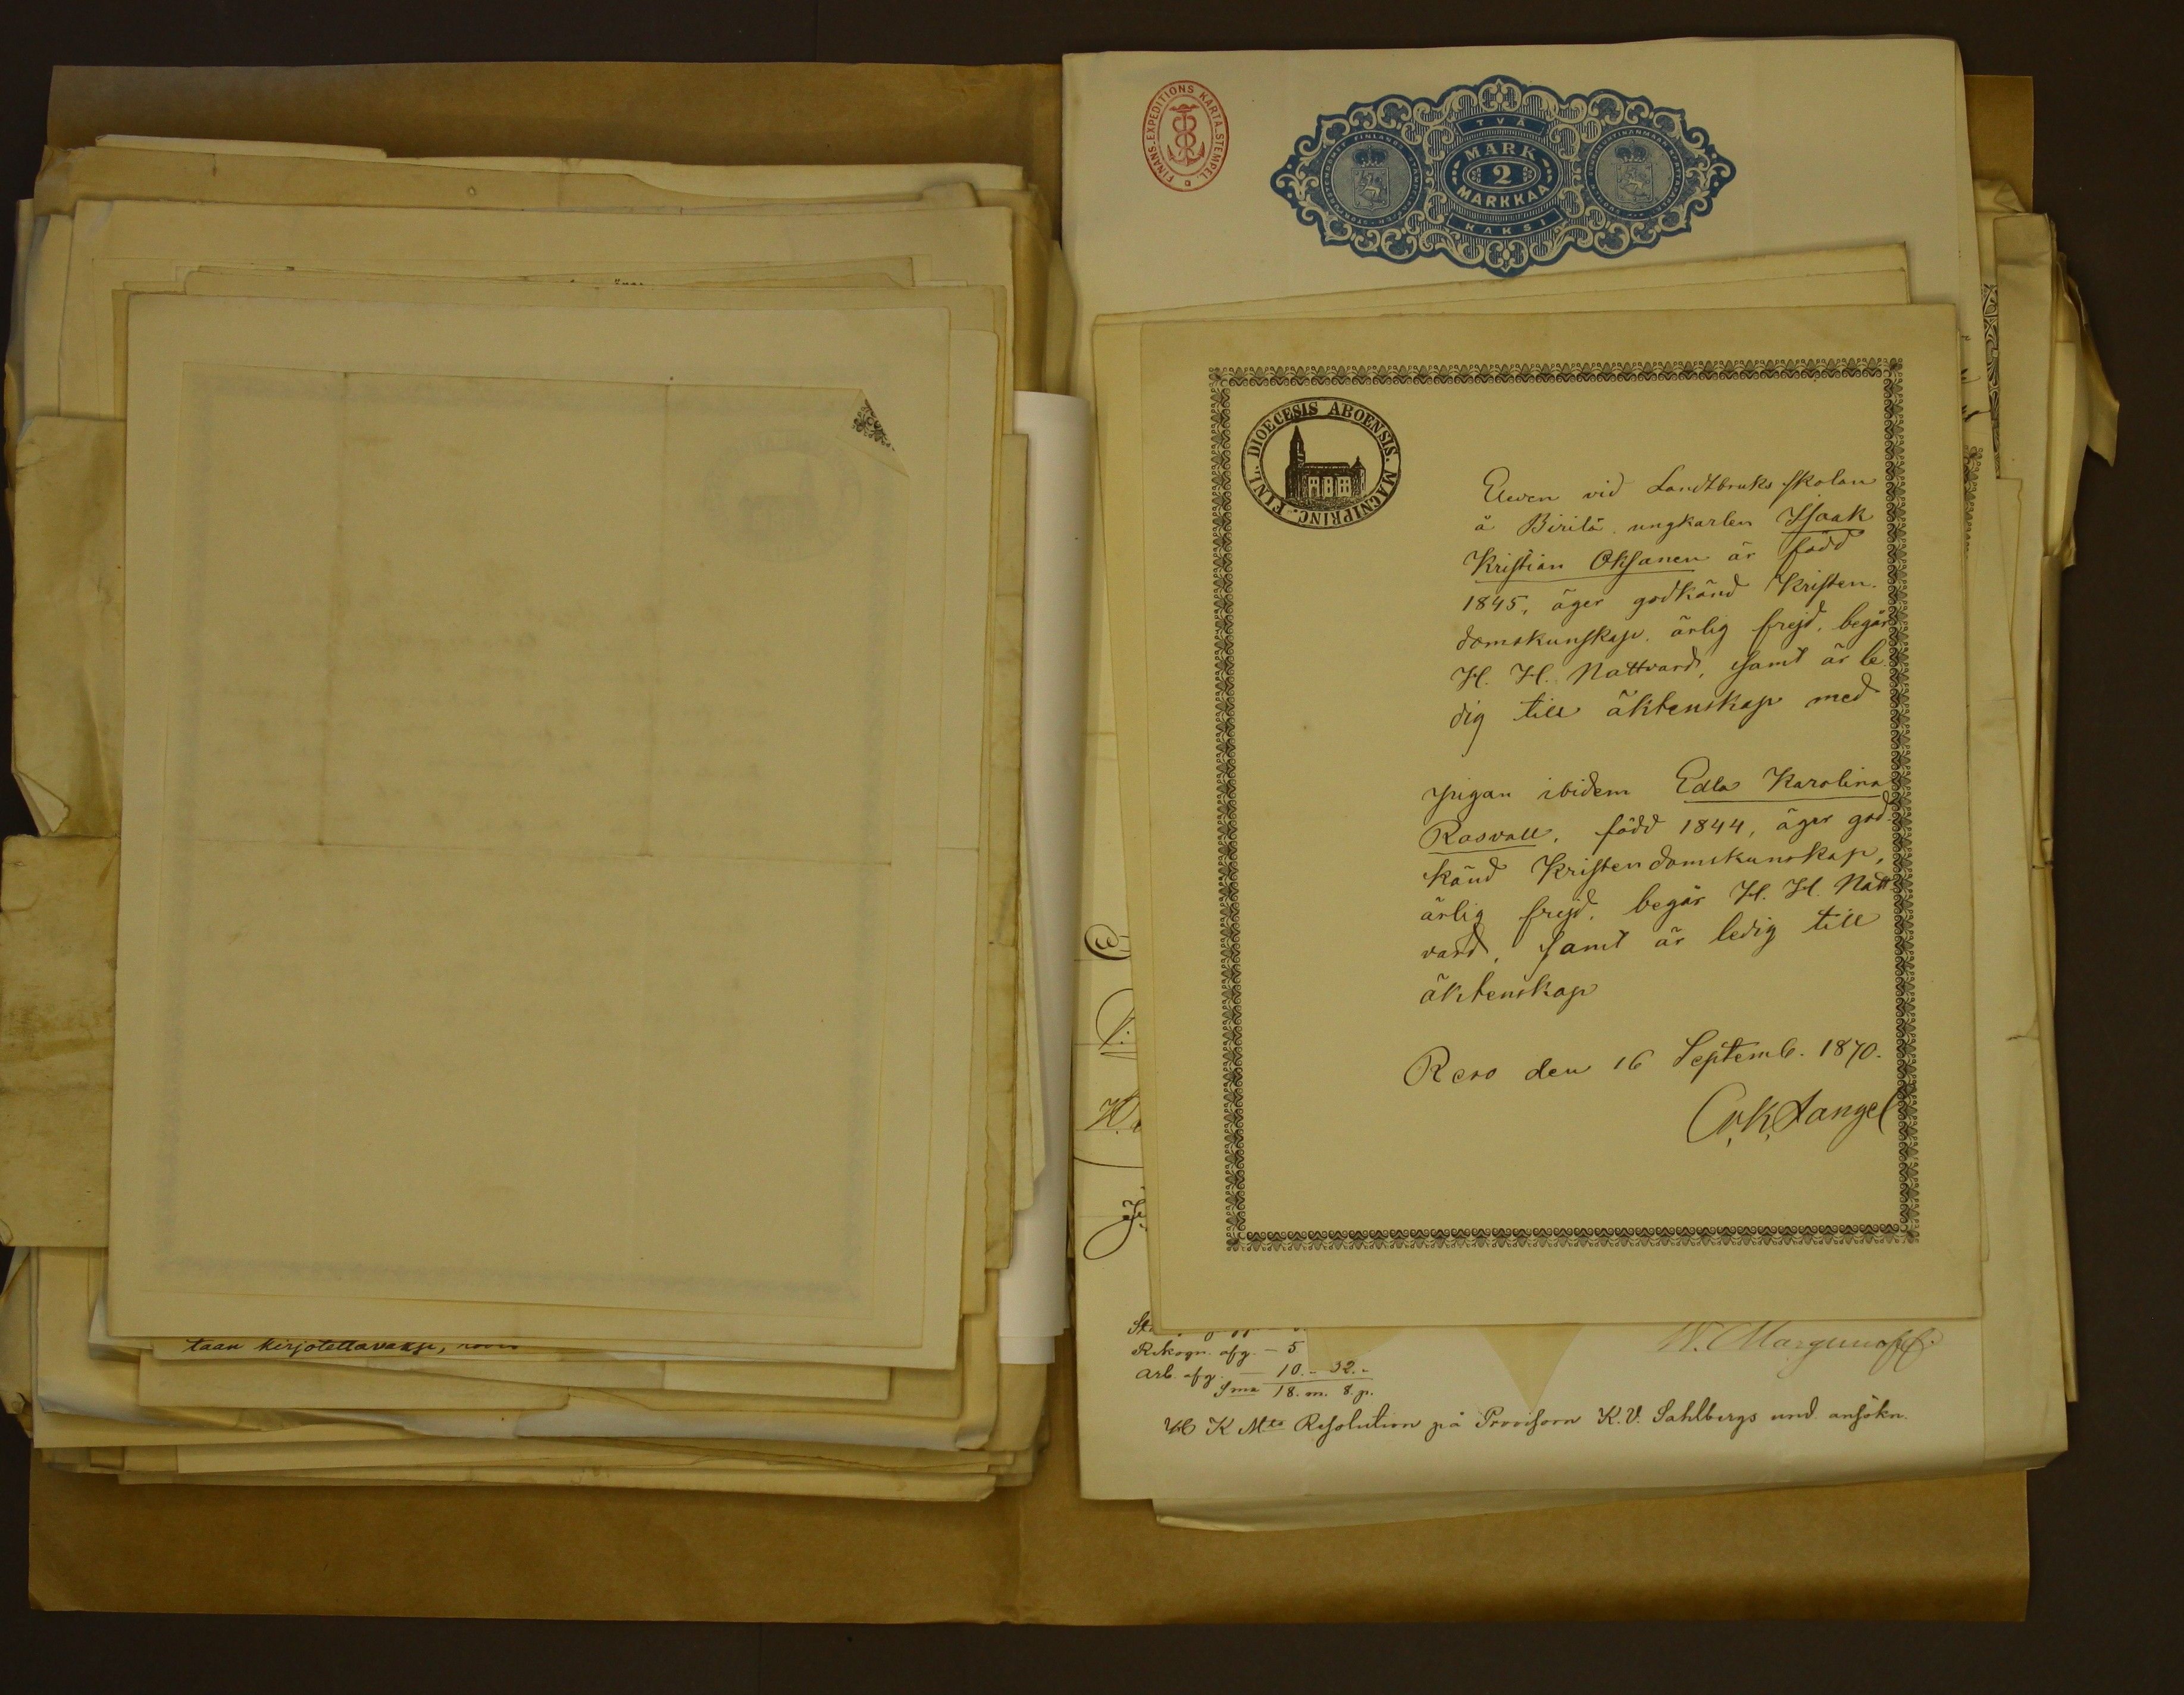 taan kirjotettavaksi,
FINANS-EXPEDITIONS KARTA-STEMPEL.
TVÅ
MARK
2
MARKKAA
KAKSI
DIOECESIS ABOENSIS. MAGNI PRINC. FINL.
Eleven vid Landtbruks skolan
å Birilä, ungkarlen Isaak
Kristian Oksanen är född
1845, äger godkänd Kristen-
domskunskap, ärlig frejd, begår
H. H. Nattvard, samt är le-
dig till äktenskap med
pigan ibidem Edla Karolina
Rosvall, född 1844, äger god-
känd Kristendomskunskap,
ärlig frejd, begår H. H. Natt-
vard, samt är ledig till
äktenskap
Reso den 16 Septemb. 1870.
Rekogn. afg. — 5
Arb. afg. — 10. - 32. -
Sma 18. m. 8. p.
K Mts Resolution på Provisorn K. V. Sahlbergs und. ansökn.